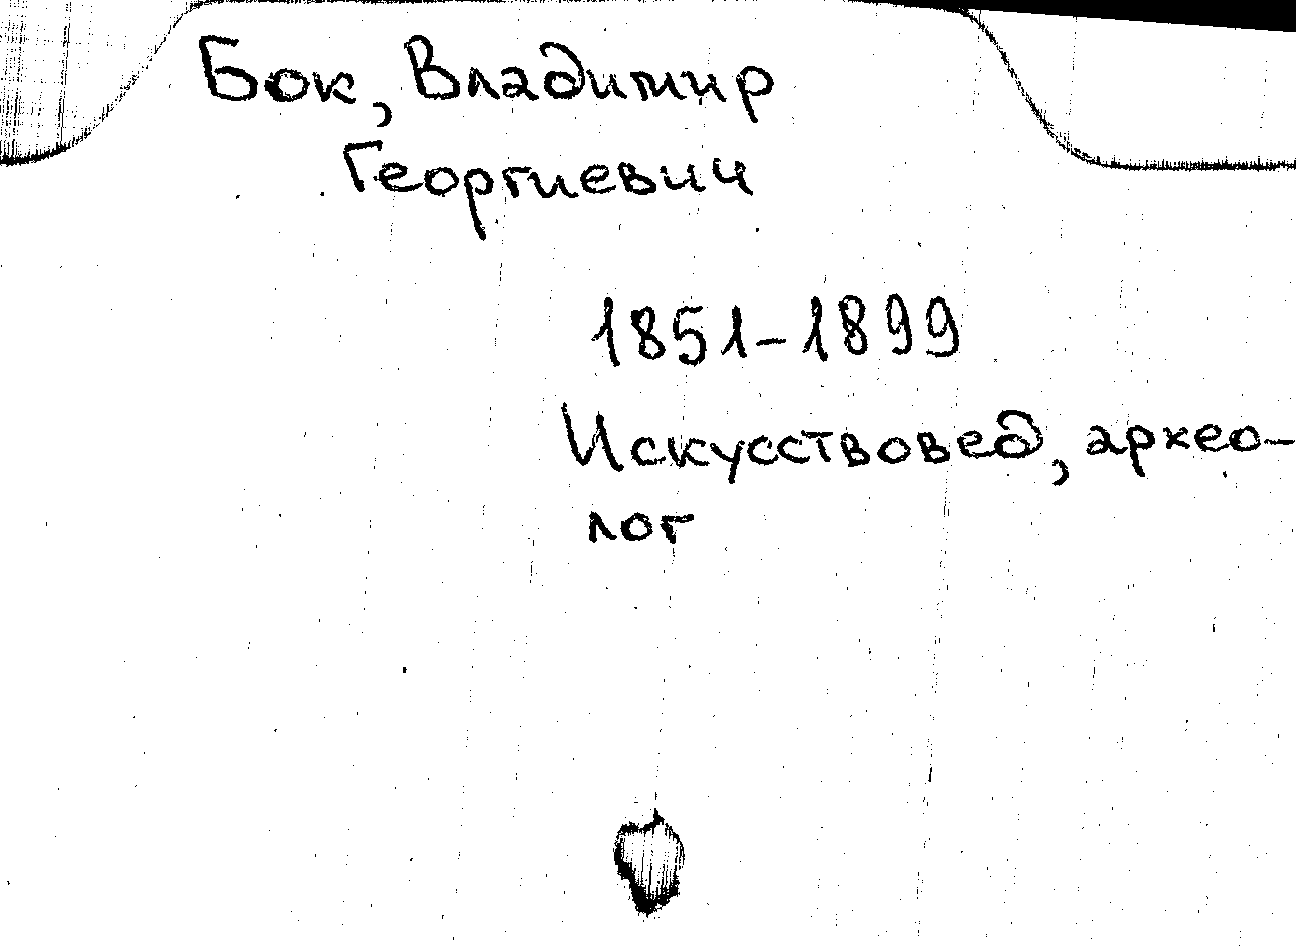 Бок, Владимир
Георгиевич
1851-1899
Искусствовед, архео-
лог